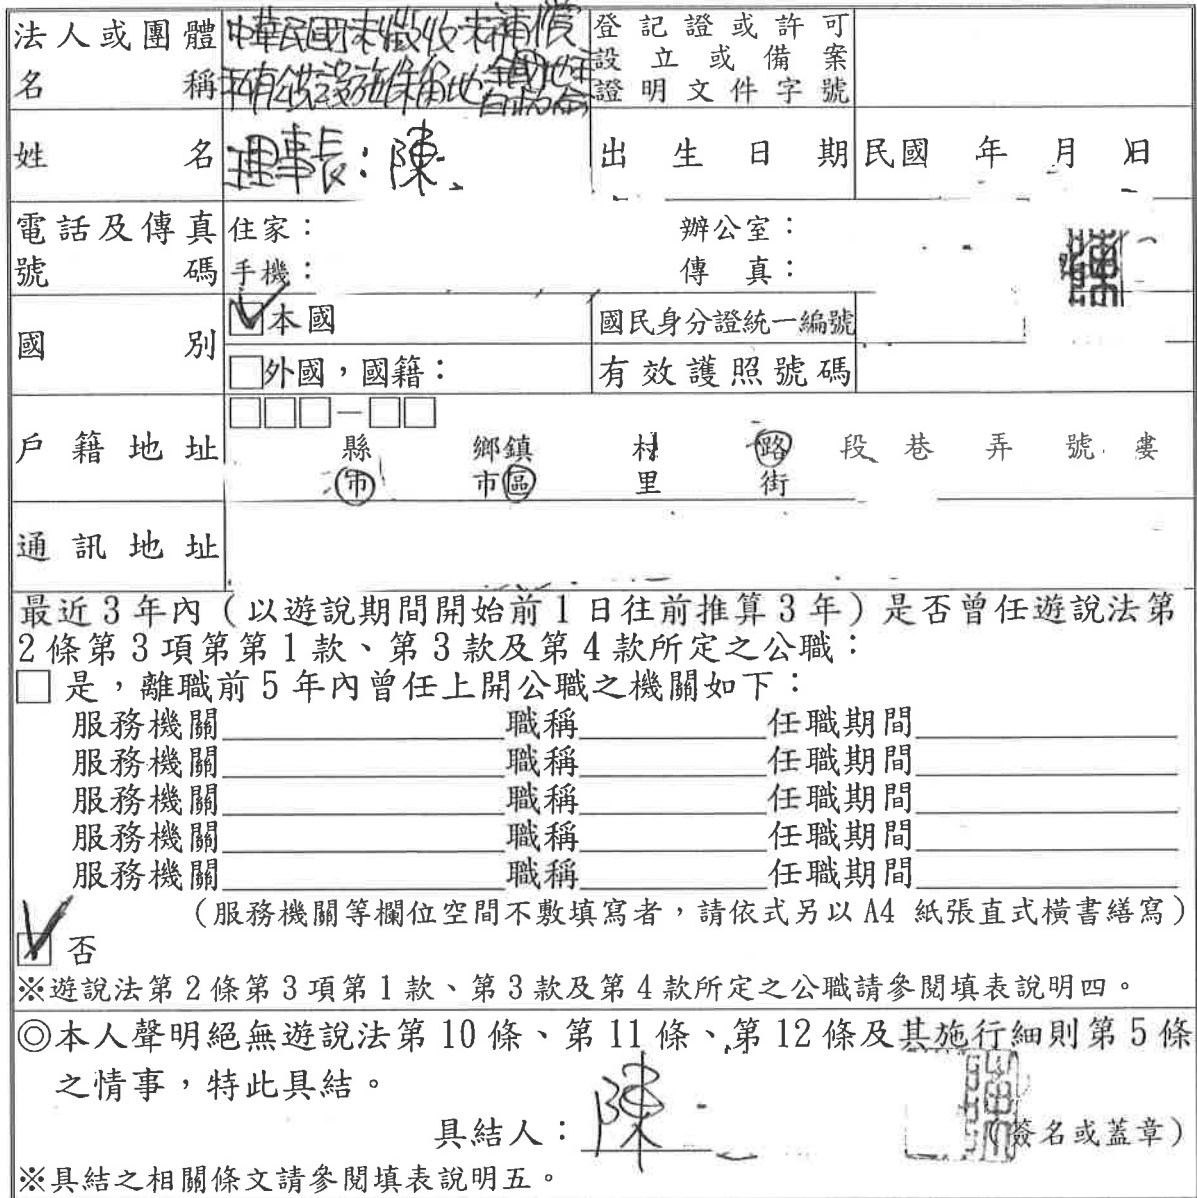 法人或團體名稱 中華民國未徵收未補償私有公共設施保留地全國地主自救會 登記證或許可設立或備案證明文件字號
姓名 理事長：陳 出生日期 民國 年 月 日
電話及傳真號碼 住家： 辦公室：
手機： 傳真：
國別 ☑本國 國民身分證統一編號
□外國，國籍： 有效護照號碼
戶籍地址 □□□－□□
縣 鄉鎮 村 路 段 巷 弄 號 樓
市 市區 里 街
通訊地址
最近3年內（以遊說期間開始前1日往前推算3年）是否曾任遊說法第
2條第3項第第1款、第3款及第4款所定之公職：
□是，離職前5年內曾任上開公職之機關如下：
服務機關 職稱 任職期間
服務機關 職稱 任職期間
服務機關 職稱 任職期間
服務機關 職稱 任職期間
服務機關 職稱 任職期間
（服務機關等欄位空間不敷填寫者，請依式另以A4 紙張直式橫書繕寫）
☑否
※遊說法第2條第3項第1款、第3款及第4款所定之公職請參閱填表說明四。
◎本人聲明絕無遊說法第10條、第11條、第12條及其施行細則第5條
之情事，特此具結。
具結人：陳 （簽名或蓋章）
※具結之相關條文請參閱填表說明五。